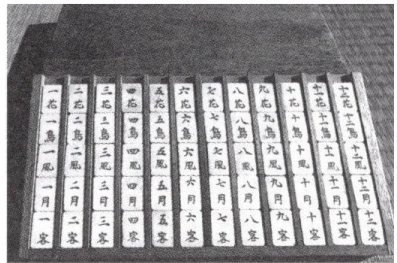 一花 二花 三花 四花 五花 六花 七花 八花 九花 十花 十一花 十二花
一鳥 二鳥 三鳥 四鳥 五鳥 六鳥 七鳥 八鳥 九鳥 十鳥 十一鳥 十二鳥
一風 二風 三風 四風 五風 六風 七風 八風 九風 十風 十一風 十二風
一月 二月 三月 四月 五月 六月 七月 八月 九月 十月 十一月 十二月
一客 二客 三客 四客 五客 六客 七客 八客 九客 十客 十一客 十二客